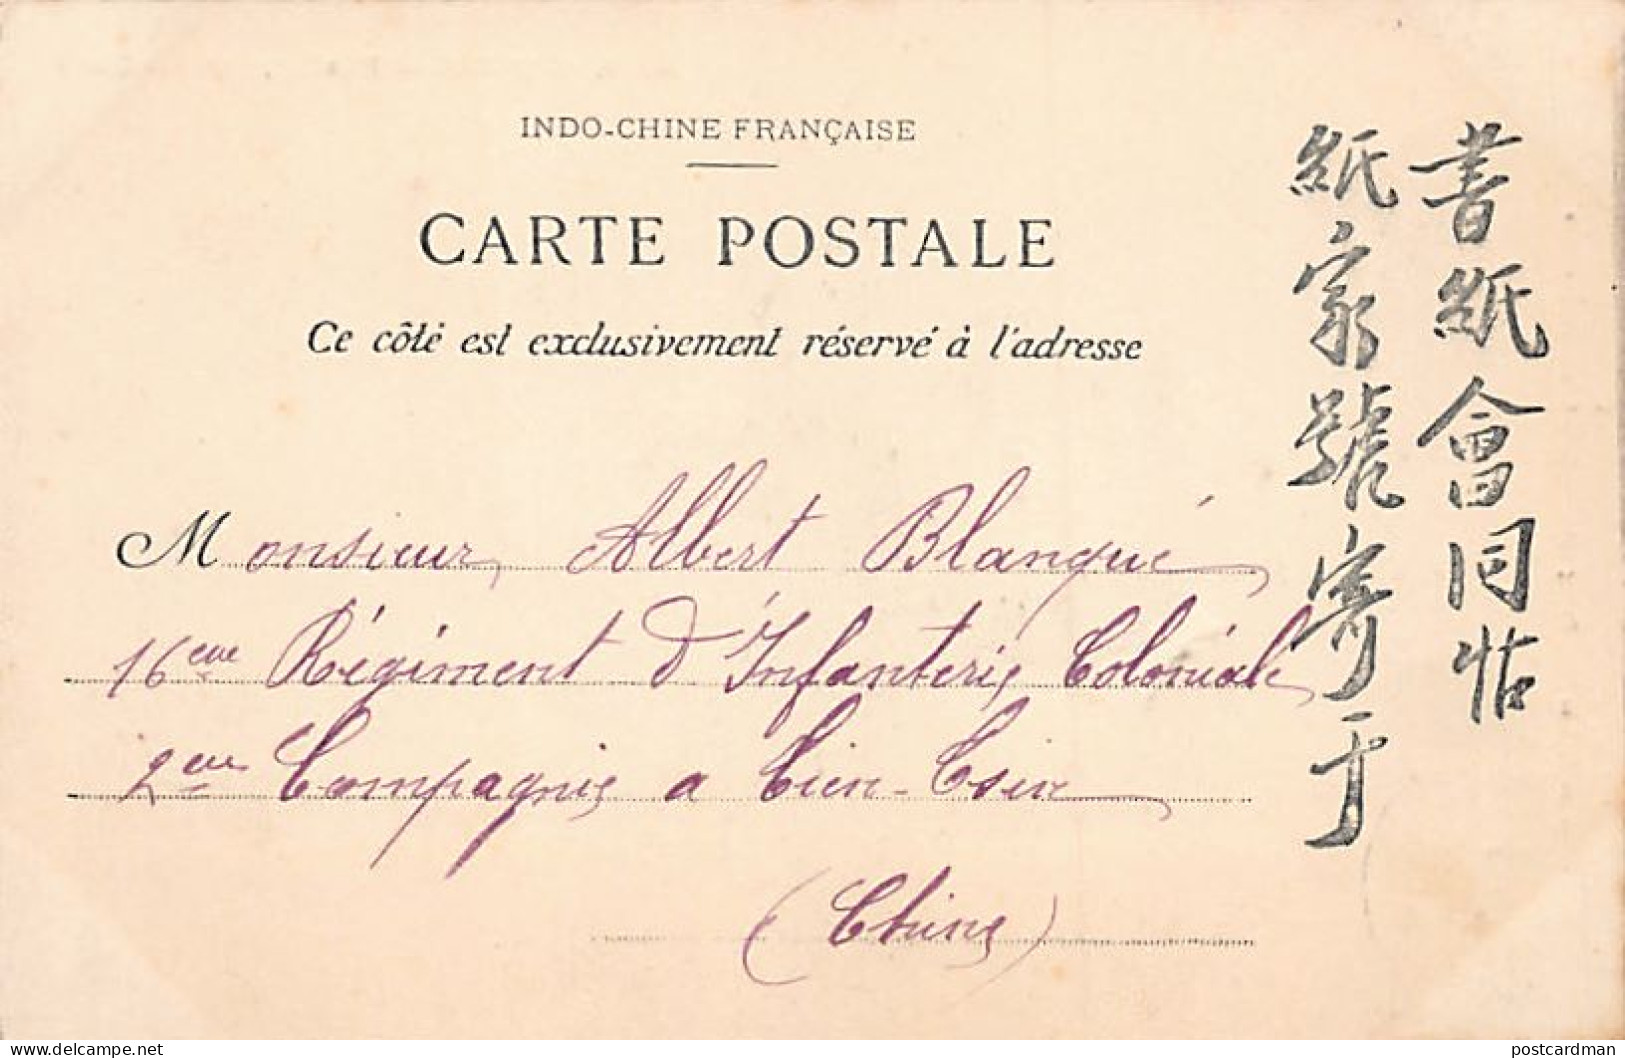 INDO-CHINE FRANÇAISE
CARTE POSTALE
Ce côté est exclusivement réservé à l'adresse
Monsieur Albert Blanqué
16eme Régiment d'Infanterie Coloniale
2eme Compagnie a Tien-Tsin
(Chine)
書紙會同帖
紙家號寄于
www.delcampe.net
postcardman